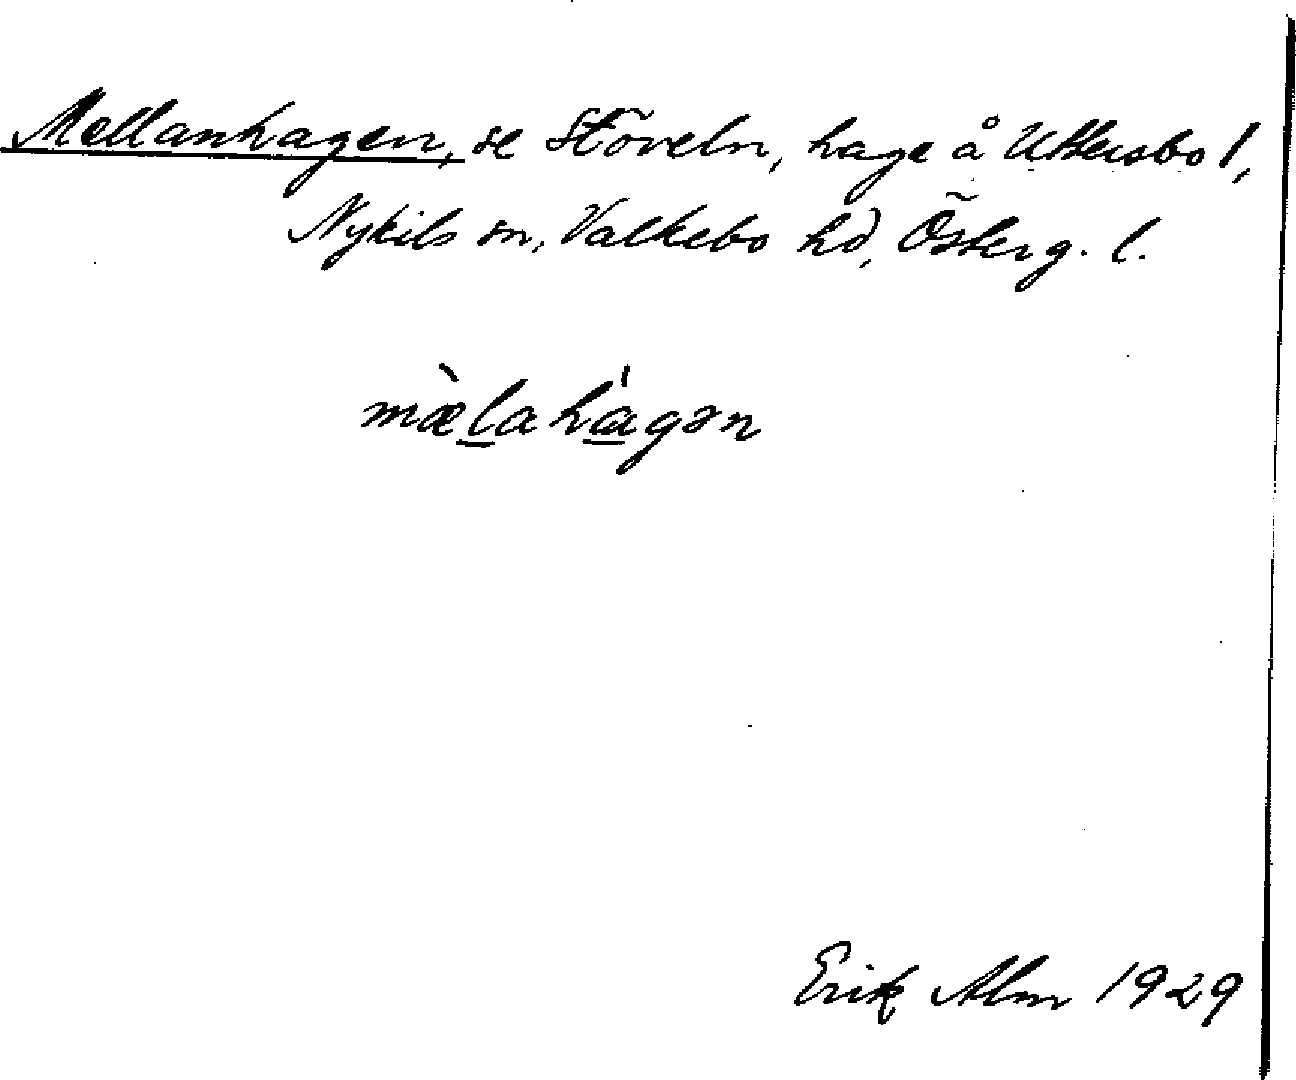 Mellanhagen, se Stöveln, hage å Uttersbo 1,
Nykils sn, Valkebo hd, Österg. l.
mæ̀l̲ahá̲gən
Erik Alm 1929